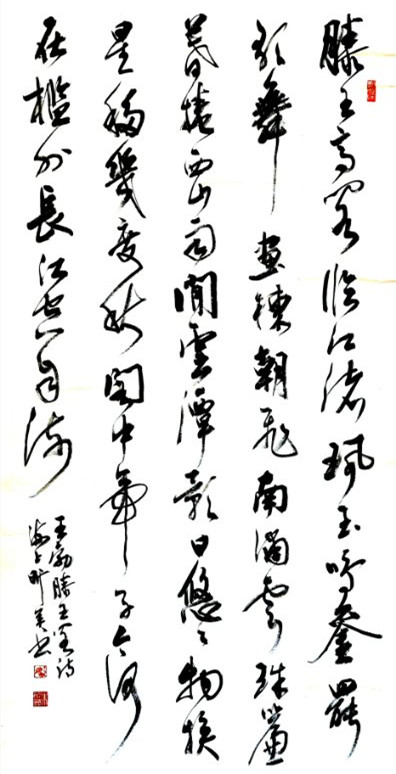 滕王高閣臨江渚珮玉鳴鑾罷
歌舞畫棟朝飛南浦雲珠簾
暮捲西山雨閒雲潭影日悠々物換
星移幾度秋閣中帝子今何
在檻外長江空自流
王勃滕王閣詩